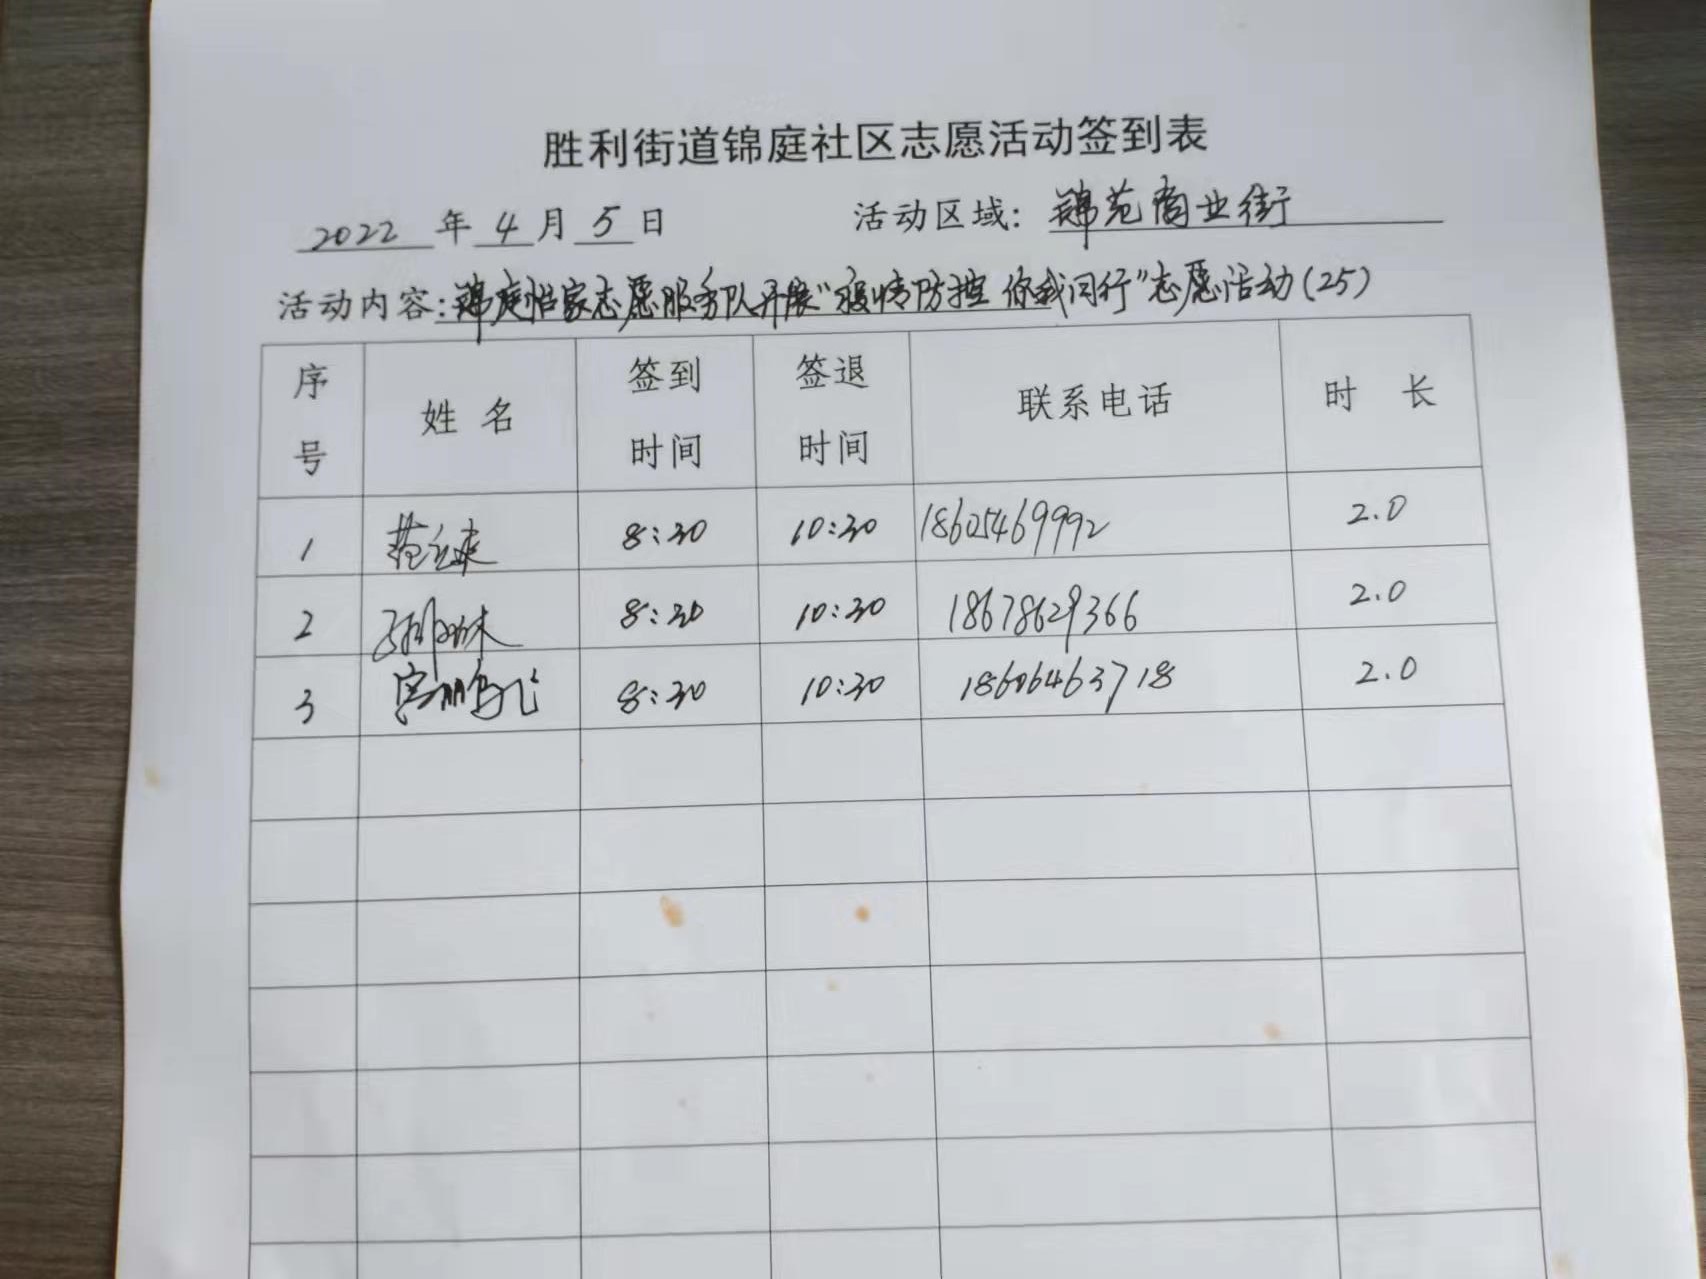 胜利街道锦庭社区志愿活动签到表
2022 年 4 月 5 日 活动区域: 锦苑商业街
活动内容: 锦庭怡家志愿服务队开展“疫情防控 你我同行”志愿活动(25)
序号 姓名 签到时间 签退时间 联系电话 时长
1 8:30 10:30 18605469992 2.0
2 8:30 10:30 18678629366 2.0
3 宫鹏飞 8:30 10:30 18606463718 2.0